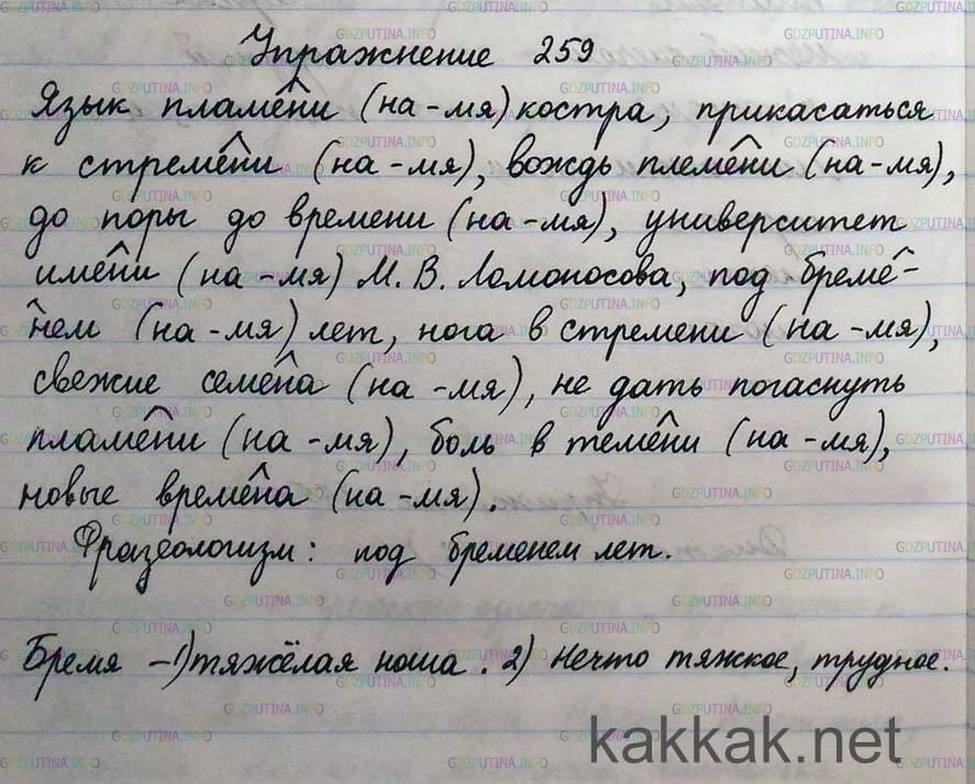 Упражнение 259
Язык пламени (на-мя) костра, прикасаться
к стремени (на-мя), вождь племени (на-мя),
до поры до времени (на-мя), университет
имени (на-мя) М. В. Ломоносова, под бреме-
нем (на-мя) лет, нога в стремени (на-мя),
свежие семена (на-мя), не дать погаснуть
пламени (на-мя), боль в темени (на-мя),
новые времена (на-мя).
Фразеологизм: под бременем лет.
Бремя – 1) тяжёлая ноша. 2) Нечто тяжкое, трудное.
kakkak.net
GDZPUTINA.INFO